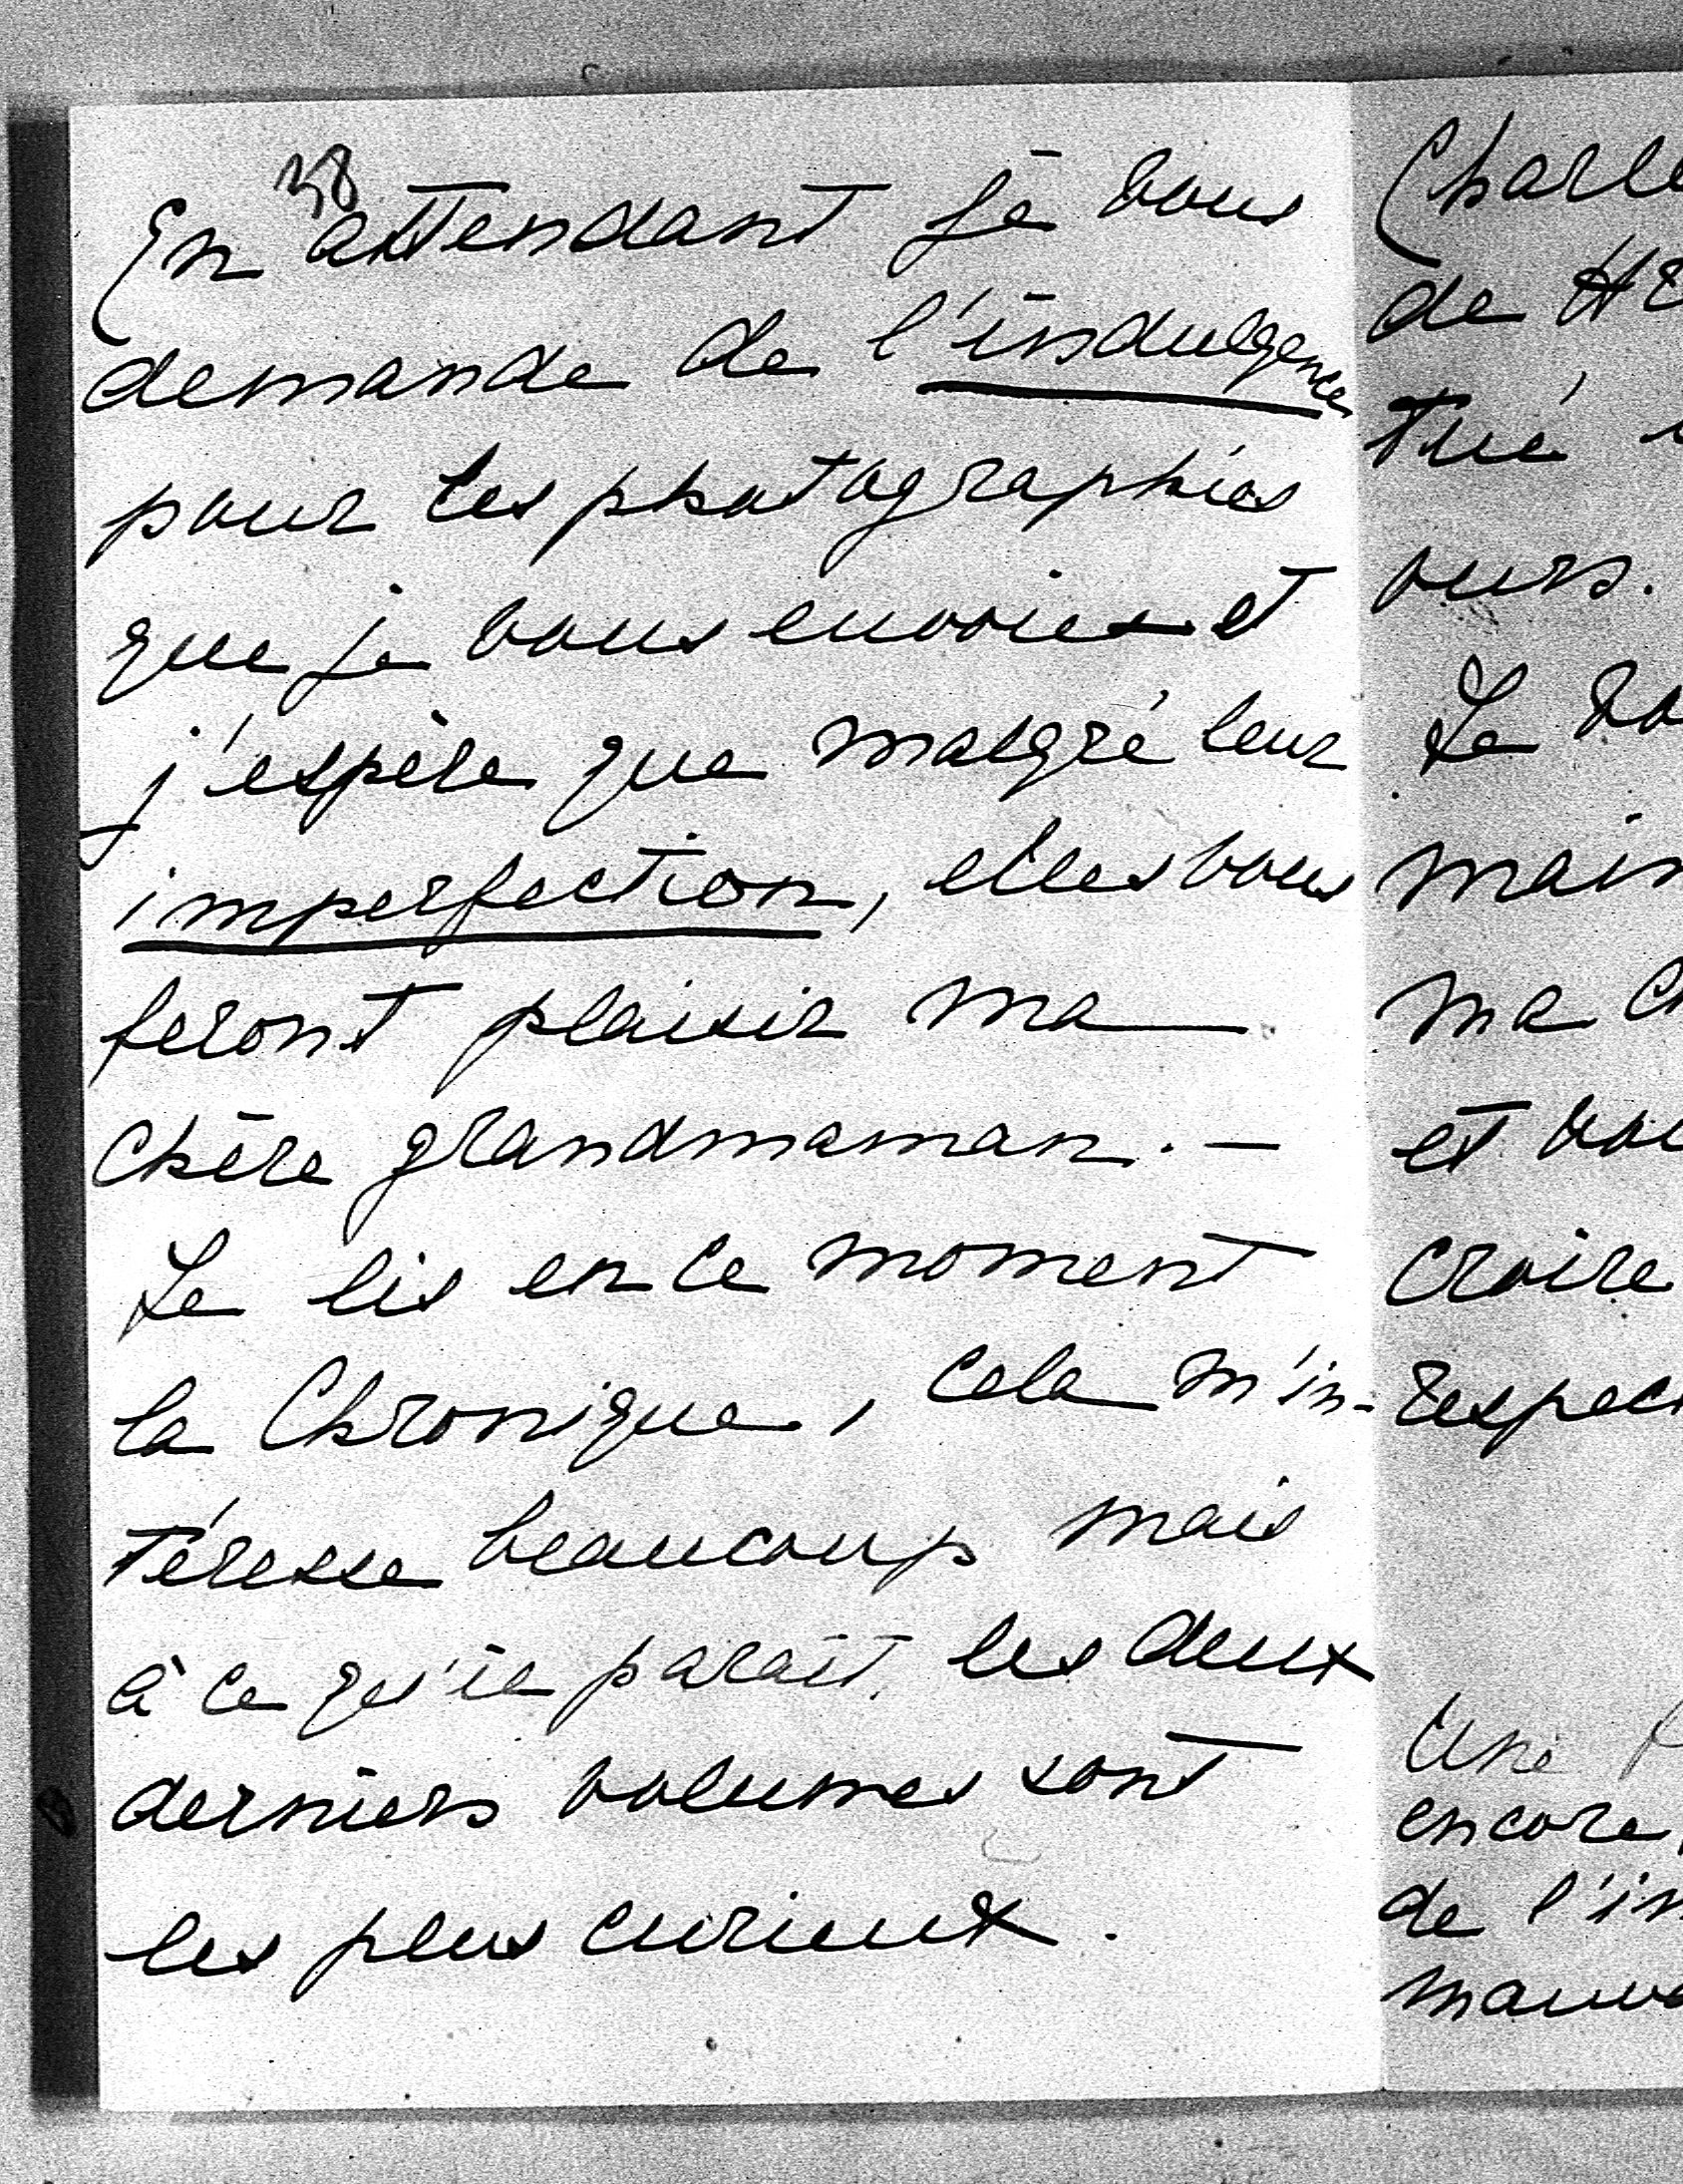 38
En attendant je vous
demande de l'indulgence
pour les photographies
que je vous envoies et
j'espère que malgré leur
imperfection, elles vous
feront plaisir ma
chère grandmaman. —
Je lis en ce moment
la Chronique, cela m'in-
téresse beaucoup mais
à ce qu'il parait les deux
derniers volumes sont
les plus curieux.
de
tué
ours.
Je
ma
et
croire
Une
encore
de l'in